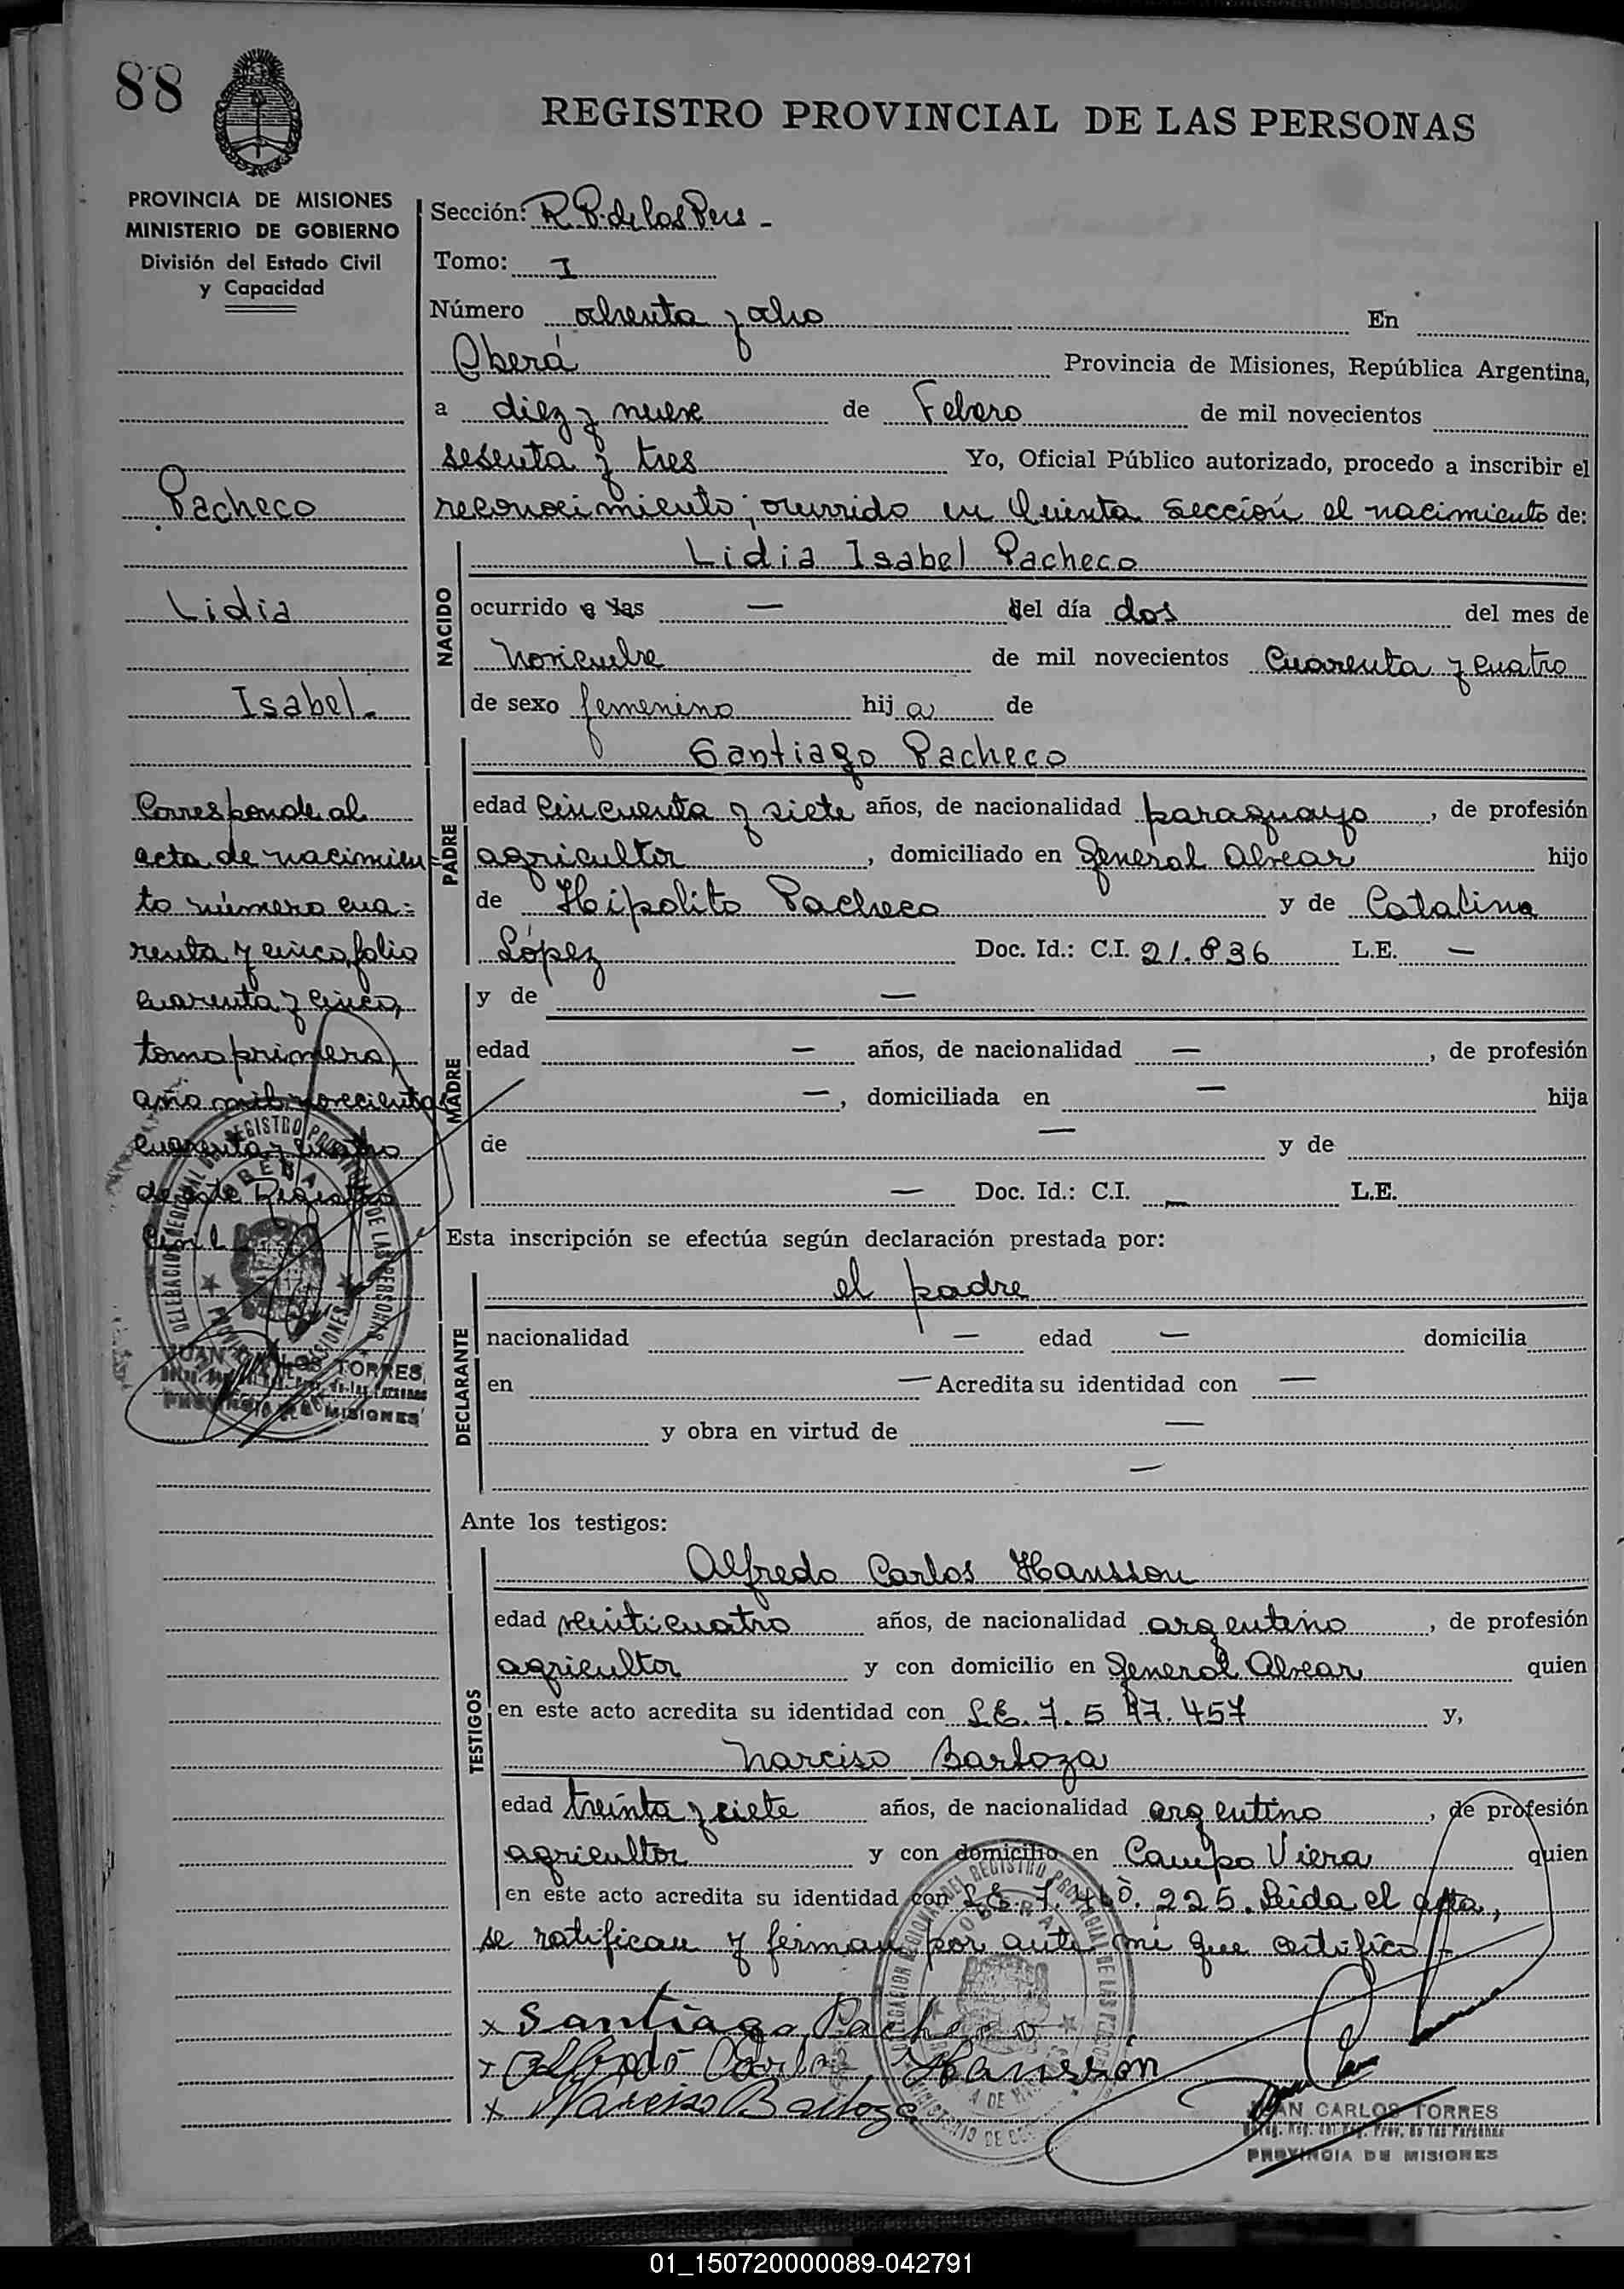 88
REGISTRO PROVINCIAL DE LAS PERSONAS
PROVINCIA DE MISIONES
MINISTERIO DE GOBIERNO
División del Estado Civil
y Capacidad
Pacheco
Lidia
Isabel.
Corresponde al
acta de nacimien
to número cua=
renta y cinco, folio
cuarenta y cinco,
tomo primero,
año mil novecientos
cuarenta y cuatro
de este Registro
Civil
JUAN CARLOS TORRES
PROVINCIA DE MISIONES
Sección: R.P. de las Pers -
Tomo: I
Número ochenta y ocho En
Oberá Provincia de Misiones, República Argentina,
a diez y nueve de Febrero de mil novecientos
sesenta y tres Yo, Oficial Público autorizado, procedo a inscribir el
reconocimiento; ocurrido en Quinta Sección el nacimiento de:
NACIDO
Lidia Isabel Pacheco
ocurrido a las — del día dos del mes de
Noviembre de mil novecientos Cuarenta y cuatro
de sexo femenino hij a de
PADRE
Santiago Pacheco
edad Cincuenta y siete años, de nacionalidad paraguayo, de profesión
agricultor, domiciliado en General Alvear hijo
de Hipolito Pacheco y de Catalina
López Doc. Id.: C.I. 21.836 L.E. —
MADRE
y de —
edad — años, de nacionalidad —, de profesión
—, domiciliada en — hija
de — y de
— Doc. Id.: C.I. — L.E.
Esta inscripción se efectúa según declaración prestada por:
DECLARANTE
el padre
nacionalidad — edad — domicilia
en — Acredita su identidad con —
y obra en virtud de —
—
Ante los testigos:
TESTIGOS
Alfredo Carlos Hansson
edad veinticuatro años, de nacionalidad argentino, de profesión
agricultor y con domicilio en General Alvear quien
en este acto acredita su identidad con L.E. 7.547.457 y,
Narciso Barboza
edad treinta y siete años, de nacionalidad argentino, de profesión
agricultor y con domicilio en Campo Viera quien
en este acto acredita su identidad con L.E. 225. Leida el acta,
se ratifican y firman por ante mí que certifico.-
x Santiago Pacheco
x Alfredo Carlos Hansson
x Narciso Barboza
JUAN CARLOS TORRES
PROVINCIA DE MISIONES
01_150720000089-042791